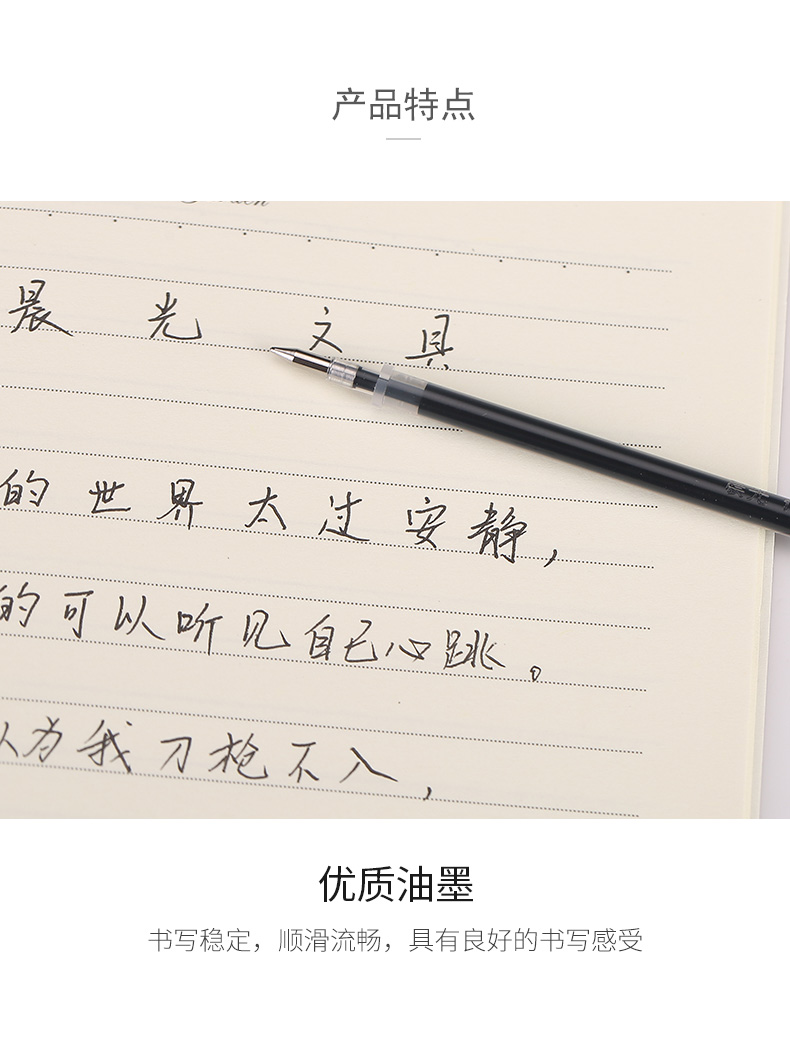 产品特点
晨光文具
的世界太过安静,
的可以听见自己心跳。
以为我刀枪不入,
优质油墨
书写稳定，顺滑流畅，具有良好的书写感受